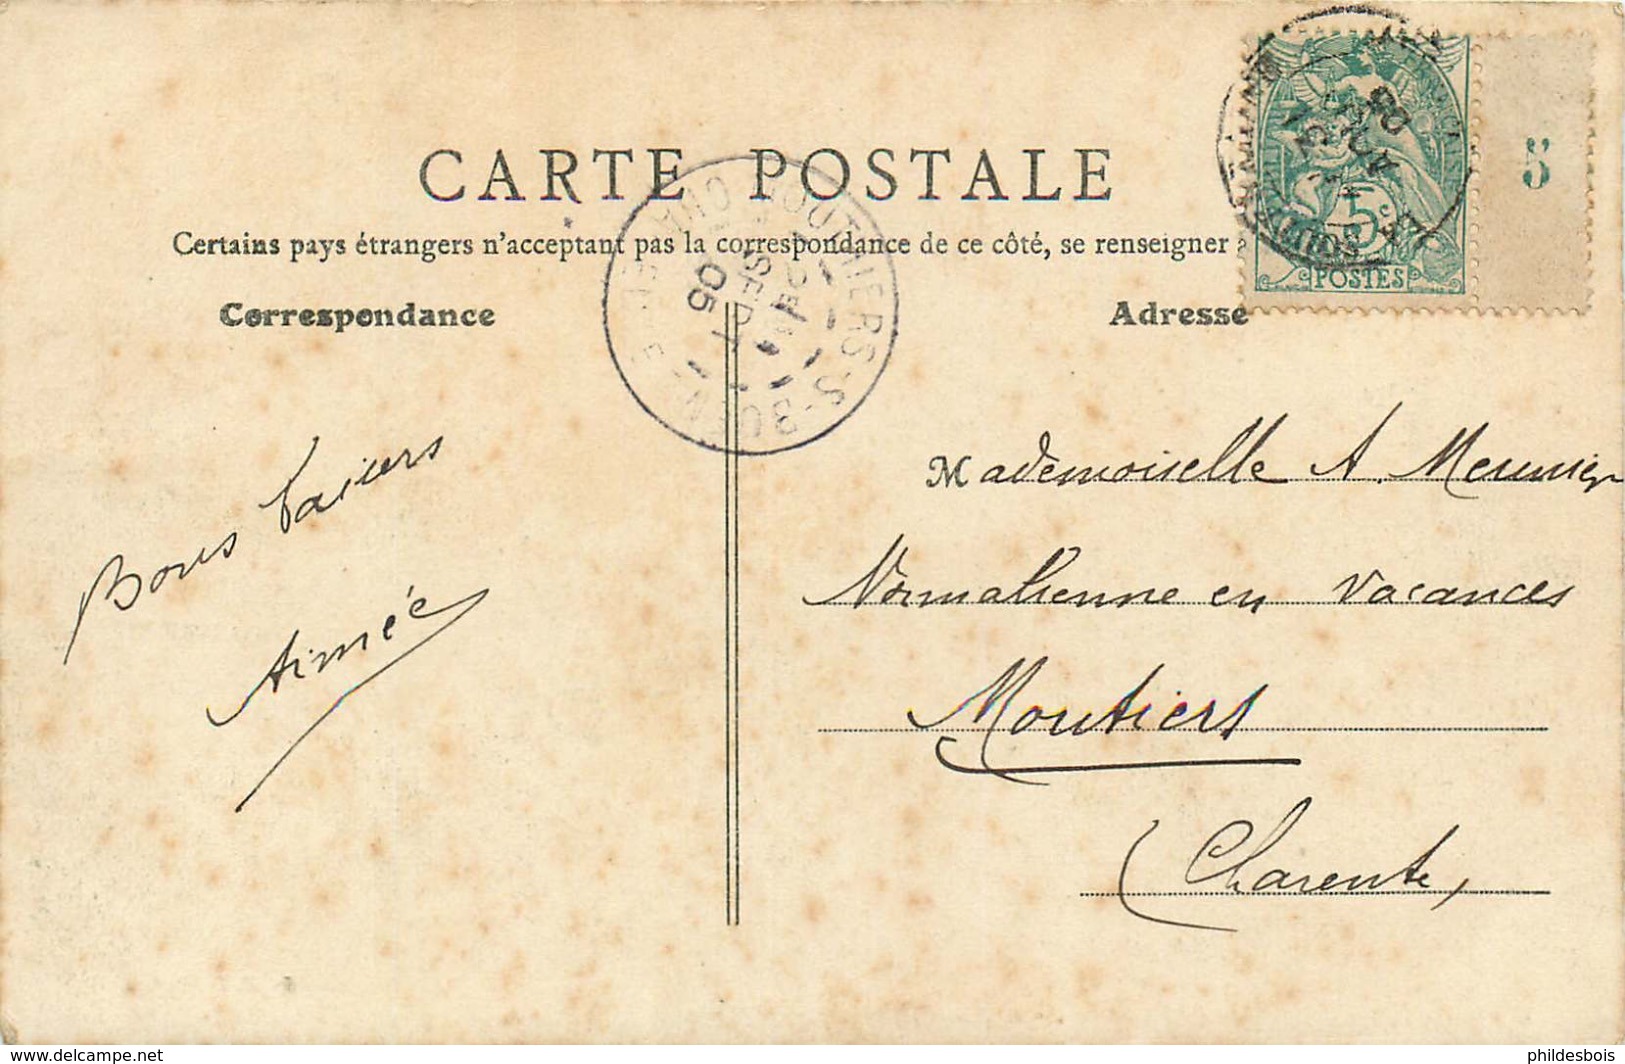 CARTE POSTALE
Certains pays étrangers n'acceptant pas la correspondance de ce côté, se renseigner à
Correspondance
Adresse
POSTES
5c
5
MOUTHIERS-S-BOËME
SEPT
05
LA SOUTERRAINE
AOUT
05
Bons baisers
Aimée
Mademoiselle A. Meunier
Normalienne en vacances
Moutiers
(Charente,
www.delcampe.net
phildesbois